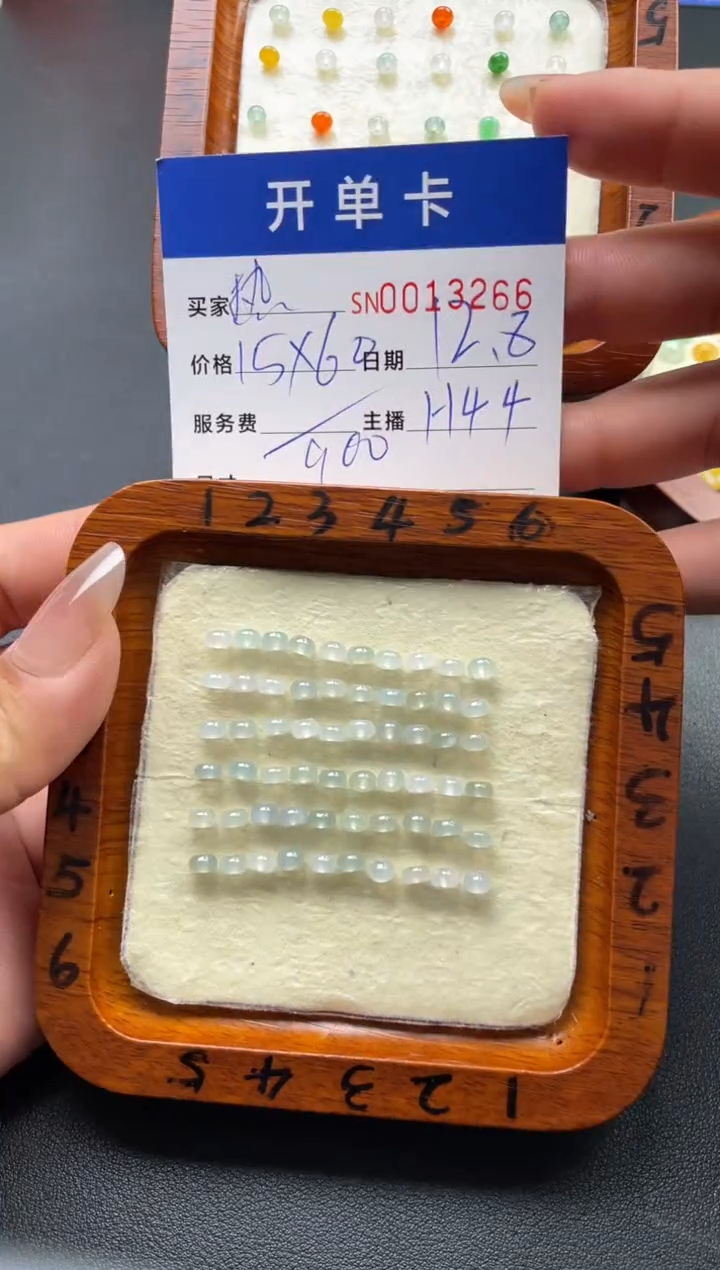 5
7
开单卡
买家 SN0013266
价格15X60 日期 12.8
服务费 主播 H44
900
1 2 3 4 5 6
5
4
3
2
1
4
5
6
5 4 3 2 1